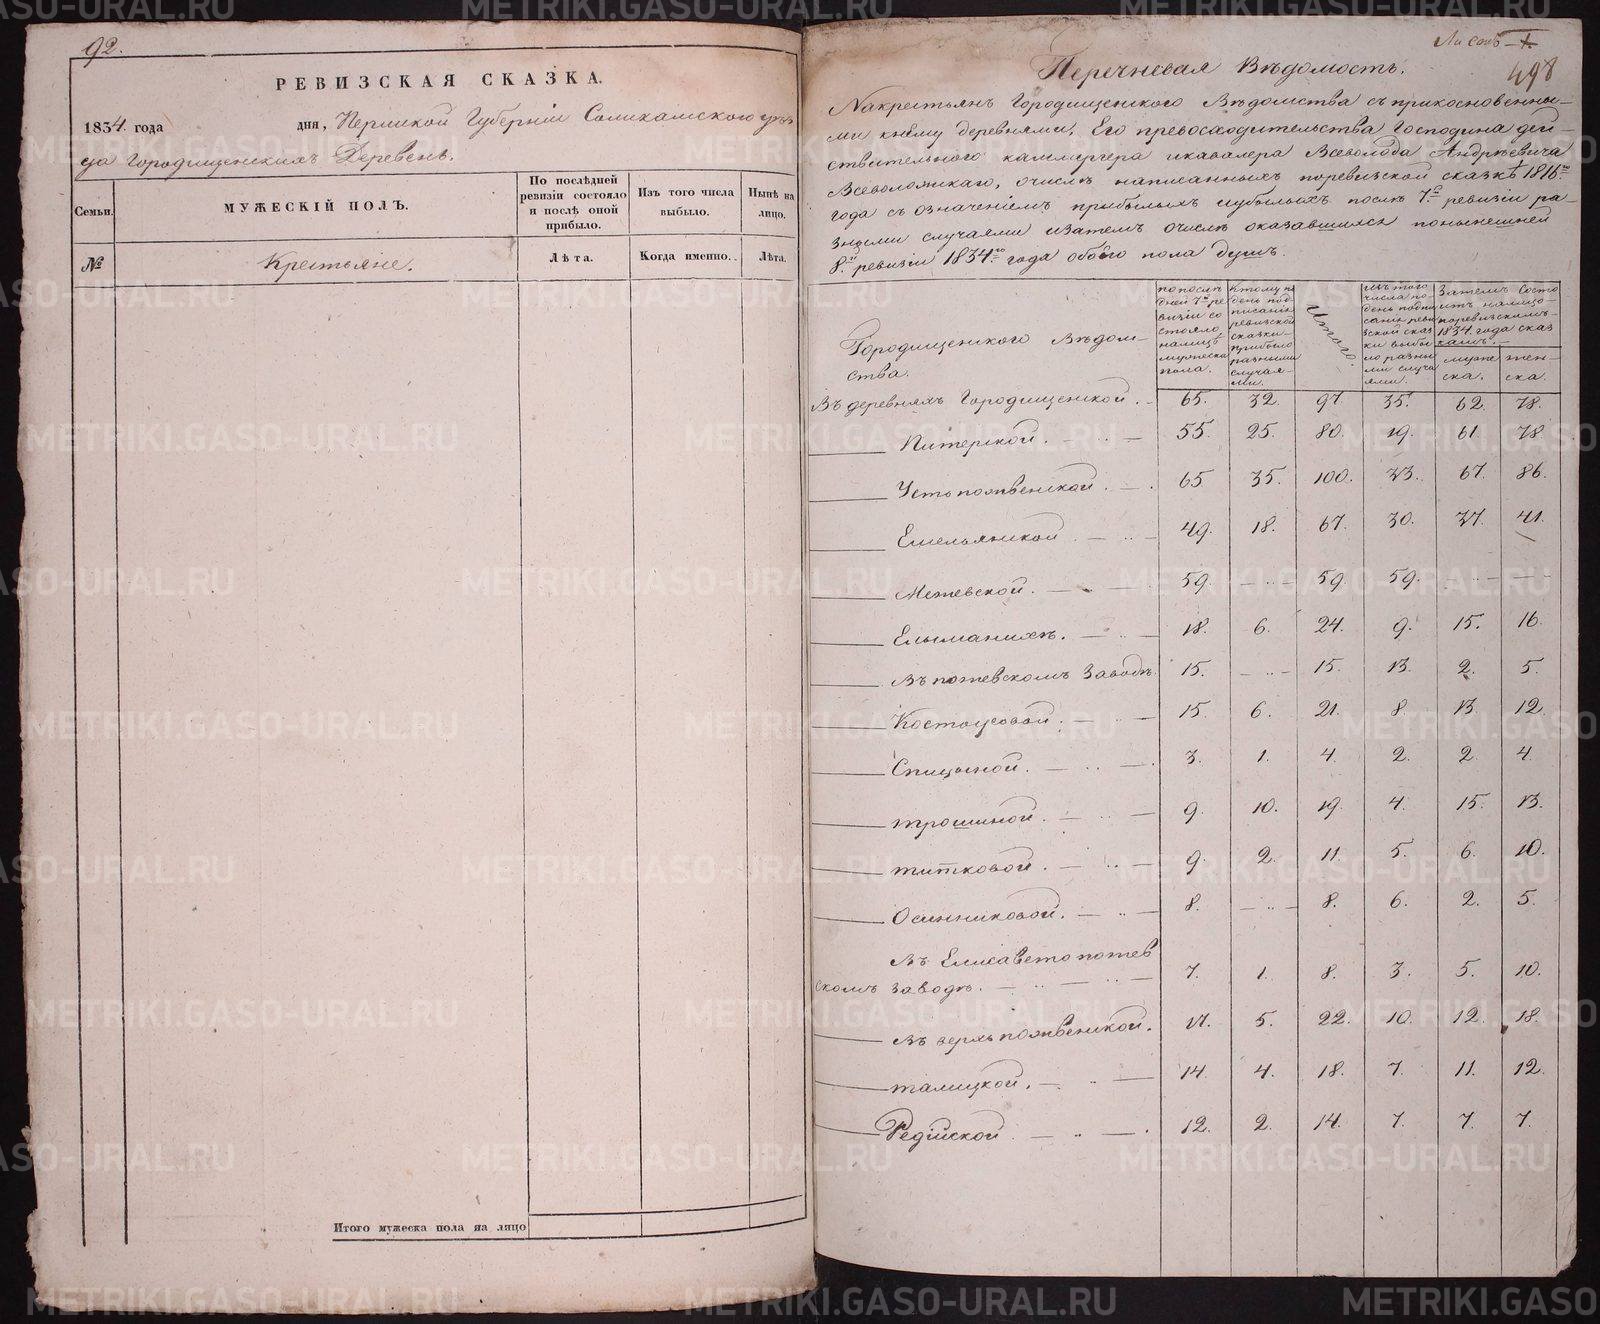 92.
РЕВИЗСКАЯ СКАЗКА.
1834 года дня, Пермской Губерніи Соликамскаго уѣз
да Городищенскихъ Деревень.
Семьи. МУЖЕСКІЙ ПОЛЪ. По послѣдней ревизіи состояло и послѣ оной прибыло. Изъ того числа выбыло. Нынѣ на лицо.
№ Крестьяне. Лѣта. Когда именно. Лѣта.
Итого мужеска пола на лицо
Листъ 1.
498
Перечневая Вѣдомость.
На крестьянъ Городищенского Вѣдомства съ прикосновенны-
ми кнему деревнями, Его превосходительства Господина дей-
ствительного каммергера икавалера Всеволода Андрѣевича
Всеволожскаго, очислѣ написанныхъ поревизской сказкѣ 1816го
года съ означеніемъ прибылыхъ иубылыхъ послѣ 7й ревизіи ра-
зными случаями изатемъ очислѣ оказавшихся понынешней
8й ревизіи 1834го года обоего пола душъ.
Городищенского Вѣдом-
ства.
по послѣ
дней 7й ре
визіи со
стояло
налицѣ
мужеска
пола.
Ктому по
день под
писанія
ревизской
сказки
прибыло
разными
случая-
ми.
Итого.
изъ того
числа по
день подпи
санія реви
зской сказ
ки выбы
ло разны
ми случа
ями.
Затемъ Состо
итъ налицо-
поревизскимъ-
1834. года сказ
камъ.
муже
ска.
жен-
ска.
Въ деревняхъ Городищенской. 65. 32. 97. 35. 62. 78.
Питерской. 55. 25. 80. 19. 61. 78.
Устьпожвенской. 65 35. 100. 33. 67. 86.
Емельянской 49. 18. 67. 30. 37. 41.
Межевской. 59. 59. 59.
Елыманихѣ. 18. 6. 24. 9. 15. 16.
Въ пожевскомъ Заводѣ 15. 15. 13. 2. 5.
Костоусовой. 15. 6. 21. 8. 13. 12.
Спицыной. 3. 1. 4. 2. 2. 4.
трошиной. 9. 10. 19. 4. 15. 13.
титковой. 9. 2. 11. 5. 6. 10.
Осинниковой. 8. 8. 6. 2. 5.
Въ Елисаветопожев
скомъ Заводѣ. 7. 1. 8. 3. 5. 10.
въ верхъ пожвенской. 17. 5. 22. 10. 12. 18.
талицкой. 14. 4. 18. 7. 11. 12.
Редійской. 12. 2. 14. 7. 7. 7.
METRIKI.GASO-URAL.RU